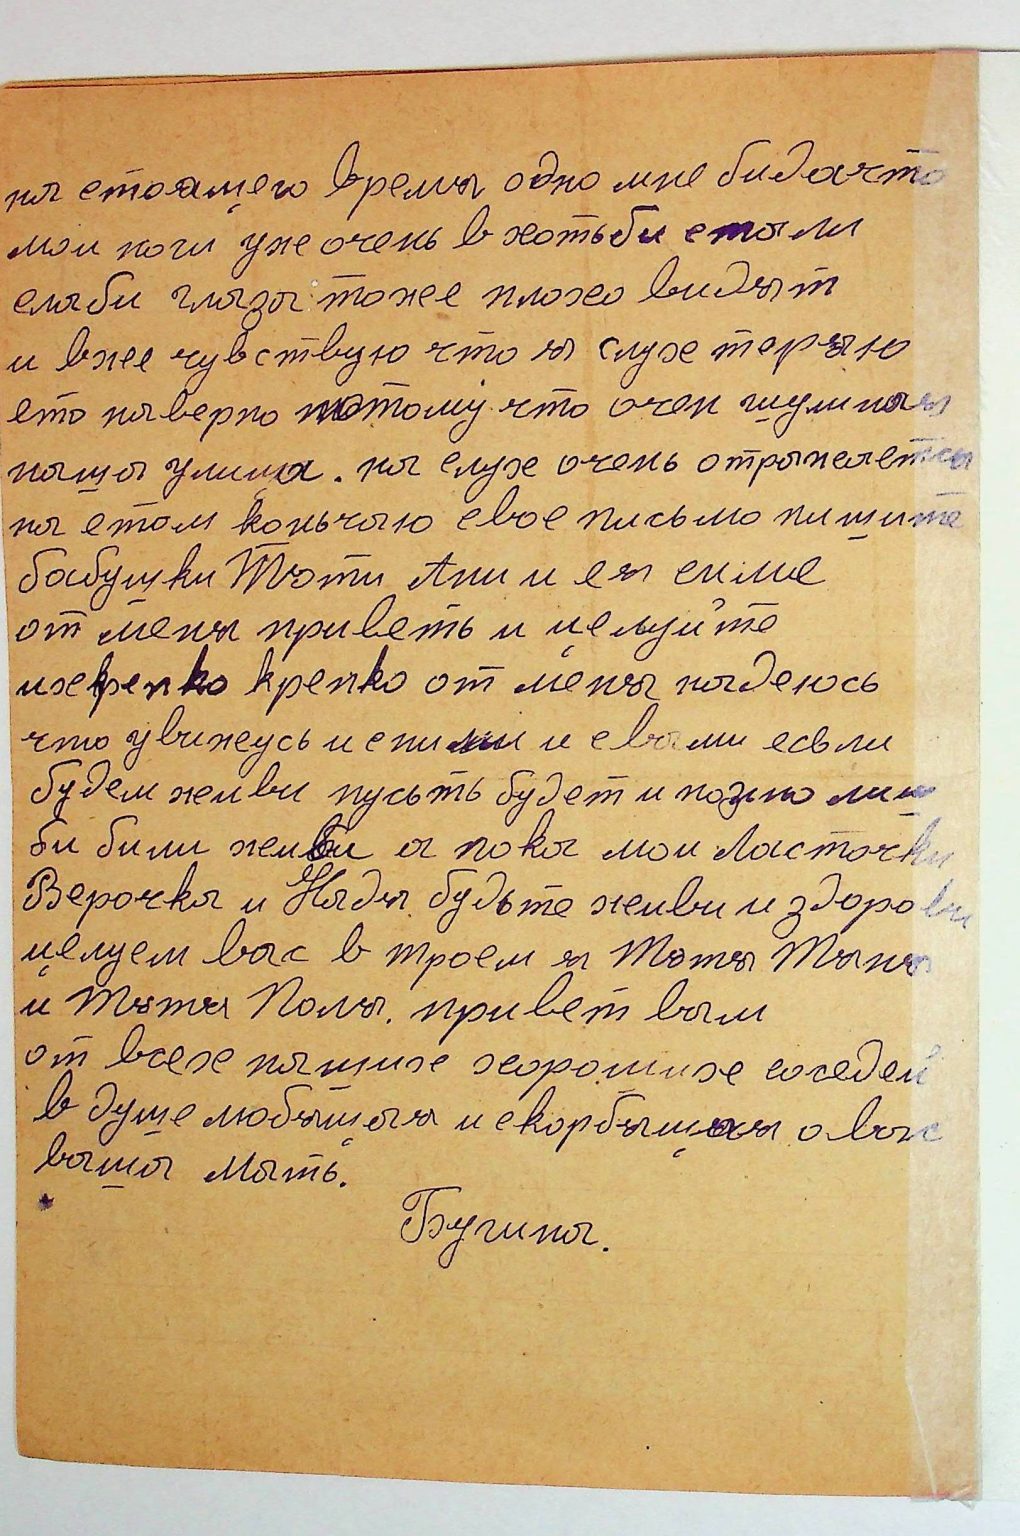 на стоящего время одно мне бида что
мои ноги уже очень в хотьби стали
слаби глаза тоже плохо видят
и вже чувствую что я слух теряю
ето наверно потому что очен шумная
наша улица. на слух очень отражается
на етом коньчаю свое письмо пишите
бабушки Тёти Ани и ея
от меня приветь и целуйте
их крепко крепко от меня надеюсь
что увижусь и с ними и с вами есьли
будем живи пусьть будет и позно лиш
би били живи а пока мои Ласточки
Верочка и Надя будьте живи и здорови
целуем вас в троем я Тётя Таня
и Тётя Поля. привет вам
от всех наших хороших соседей
в душе любящая и скорбящая о вас
ваша Мать.
Бугина.